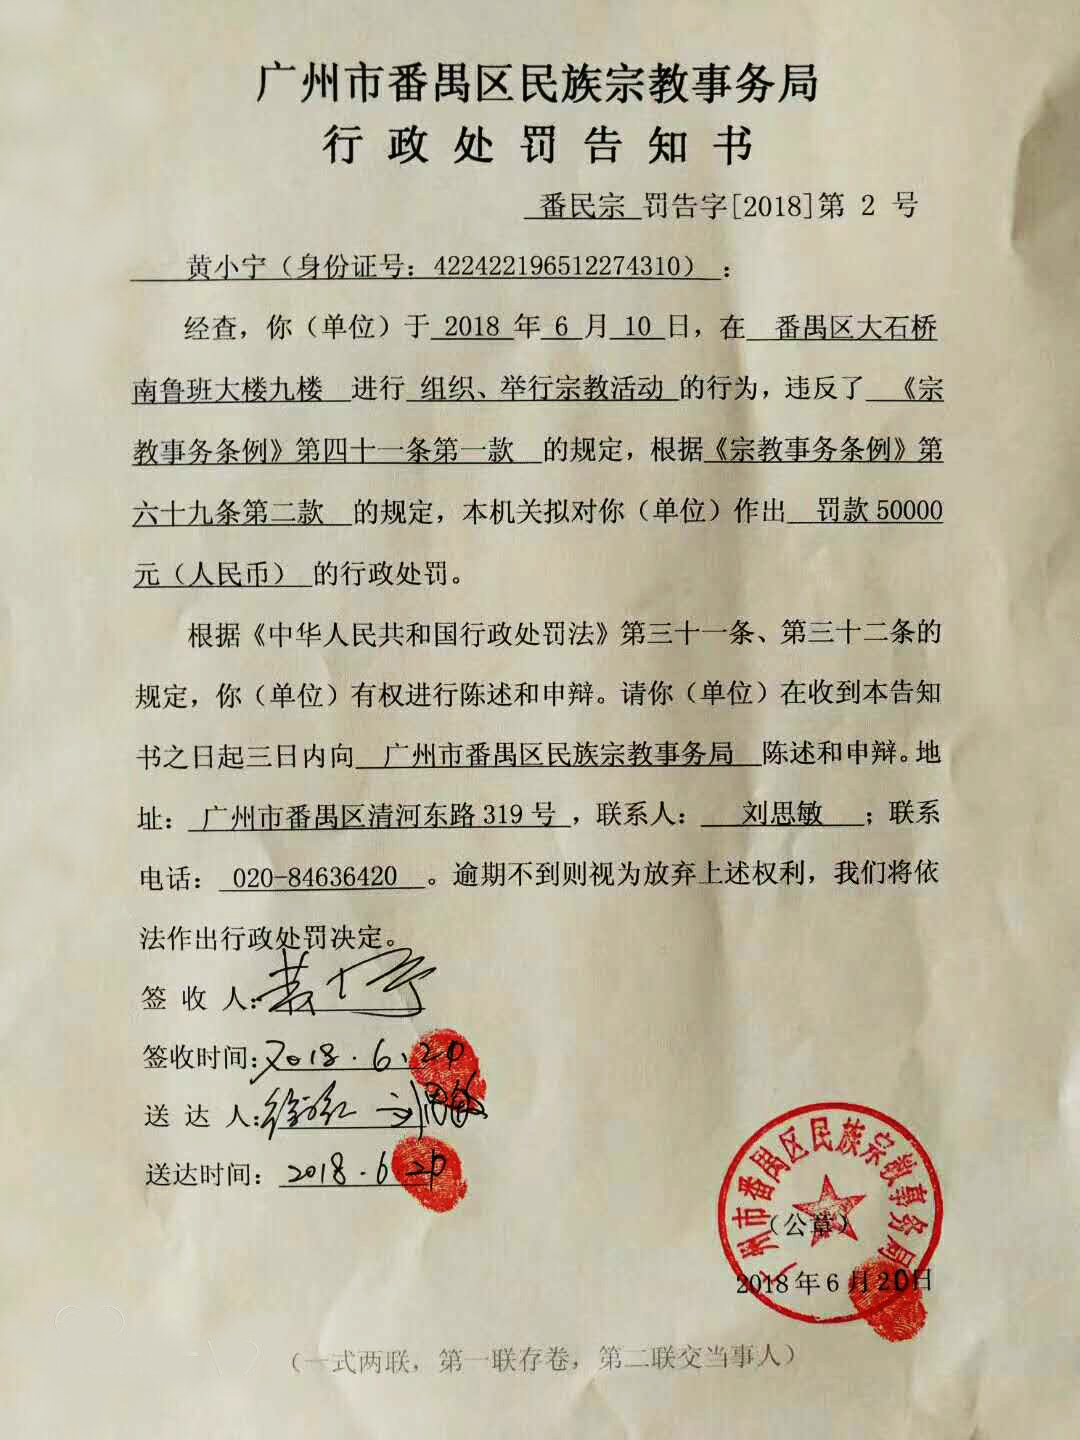 广州市番禺区民族宗教事务局
行政处罚告知书
番民宗 罚告字[2018]第 2 号
黄小宁（身份证号：422422196512274310）：
经查，你（单位）于 2018 年 6 月 10 日，在 番禺区大石桥
南鲁班大楼九楼 进行 组织、举行宗教活动 的行为，违反了 《宗
教事务条例》第四十一条第一款 的规定，根据《宗教事务条例》第
六十九条第二款 的规定，本机关拟对你（单位）作出 罚款 50000
元（人民币） 的行政处罚。
根据《中华人民共和国行政处罚法》第三十一条、第三十二条的
规定，你（单位）有权进行陈述和申辩。请你（单位）在收到本告知
书之日起三日内向 广州市番禺区民族宗教事务局 陈述和申辩。地
址： 广州市番禺区清河东路 319 号 ，联系人： 刘思敏 ；联系
电话： 020-84636420 。逾期不到则视为放弃上述权利，我们将依
法作出行政处罚决定。
签 收 人：黄小宁
签收时间：2018.6.20
送 达 人： 刘思敏
送达时间： 2018.6.20
广州市番禺区民族宗教事务局
（公章）
2018 年 6 月 20日
（一式两联，第一联存卷，第二联交当事人）